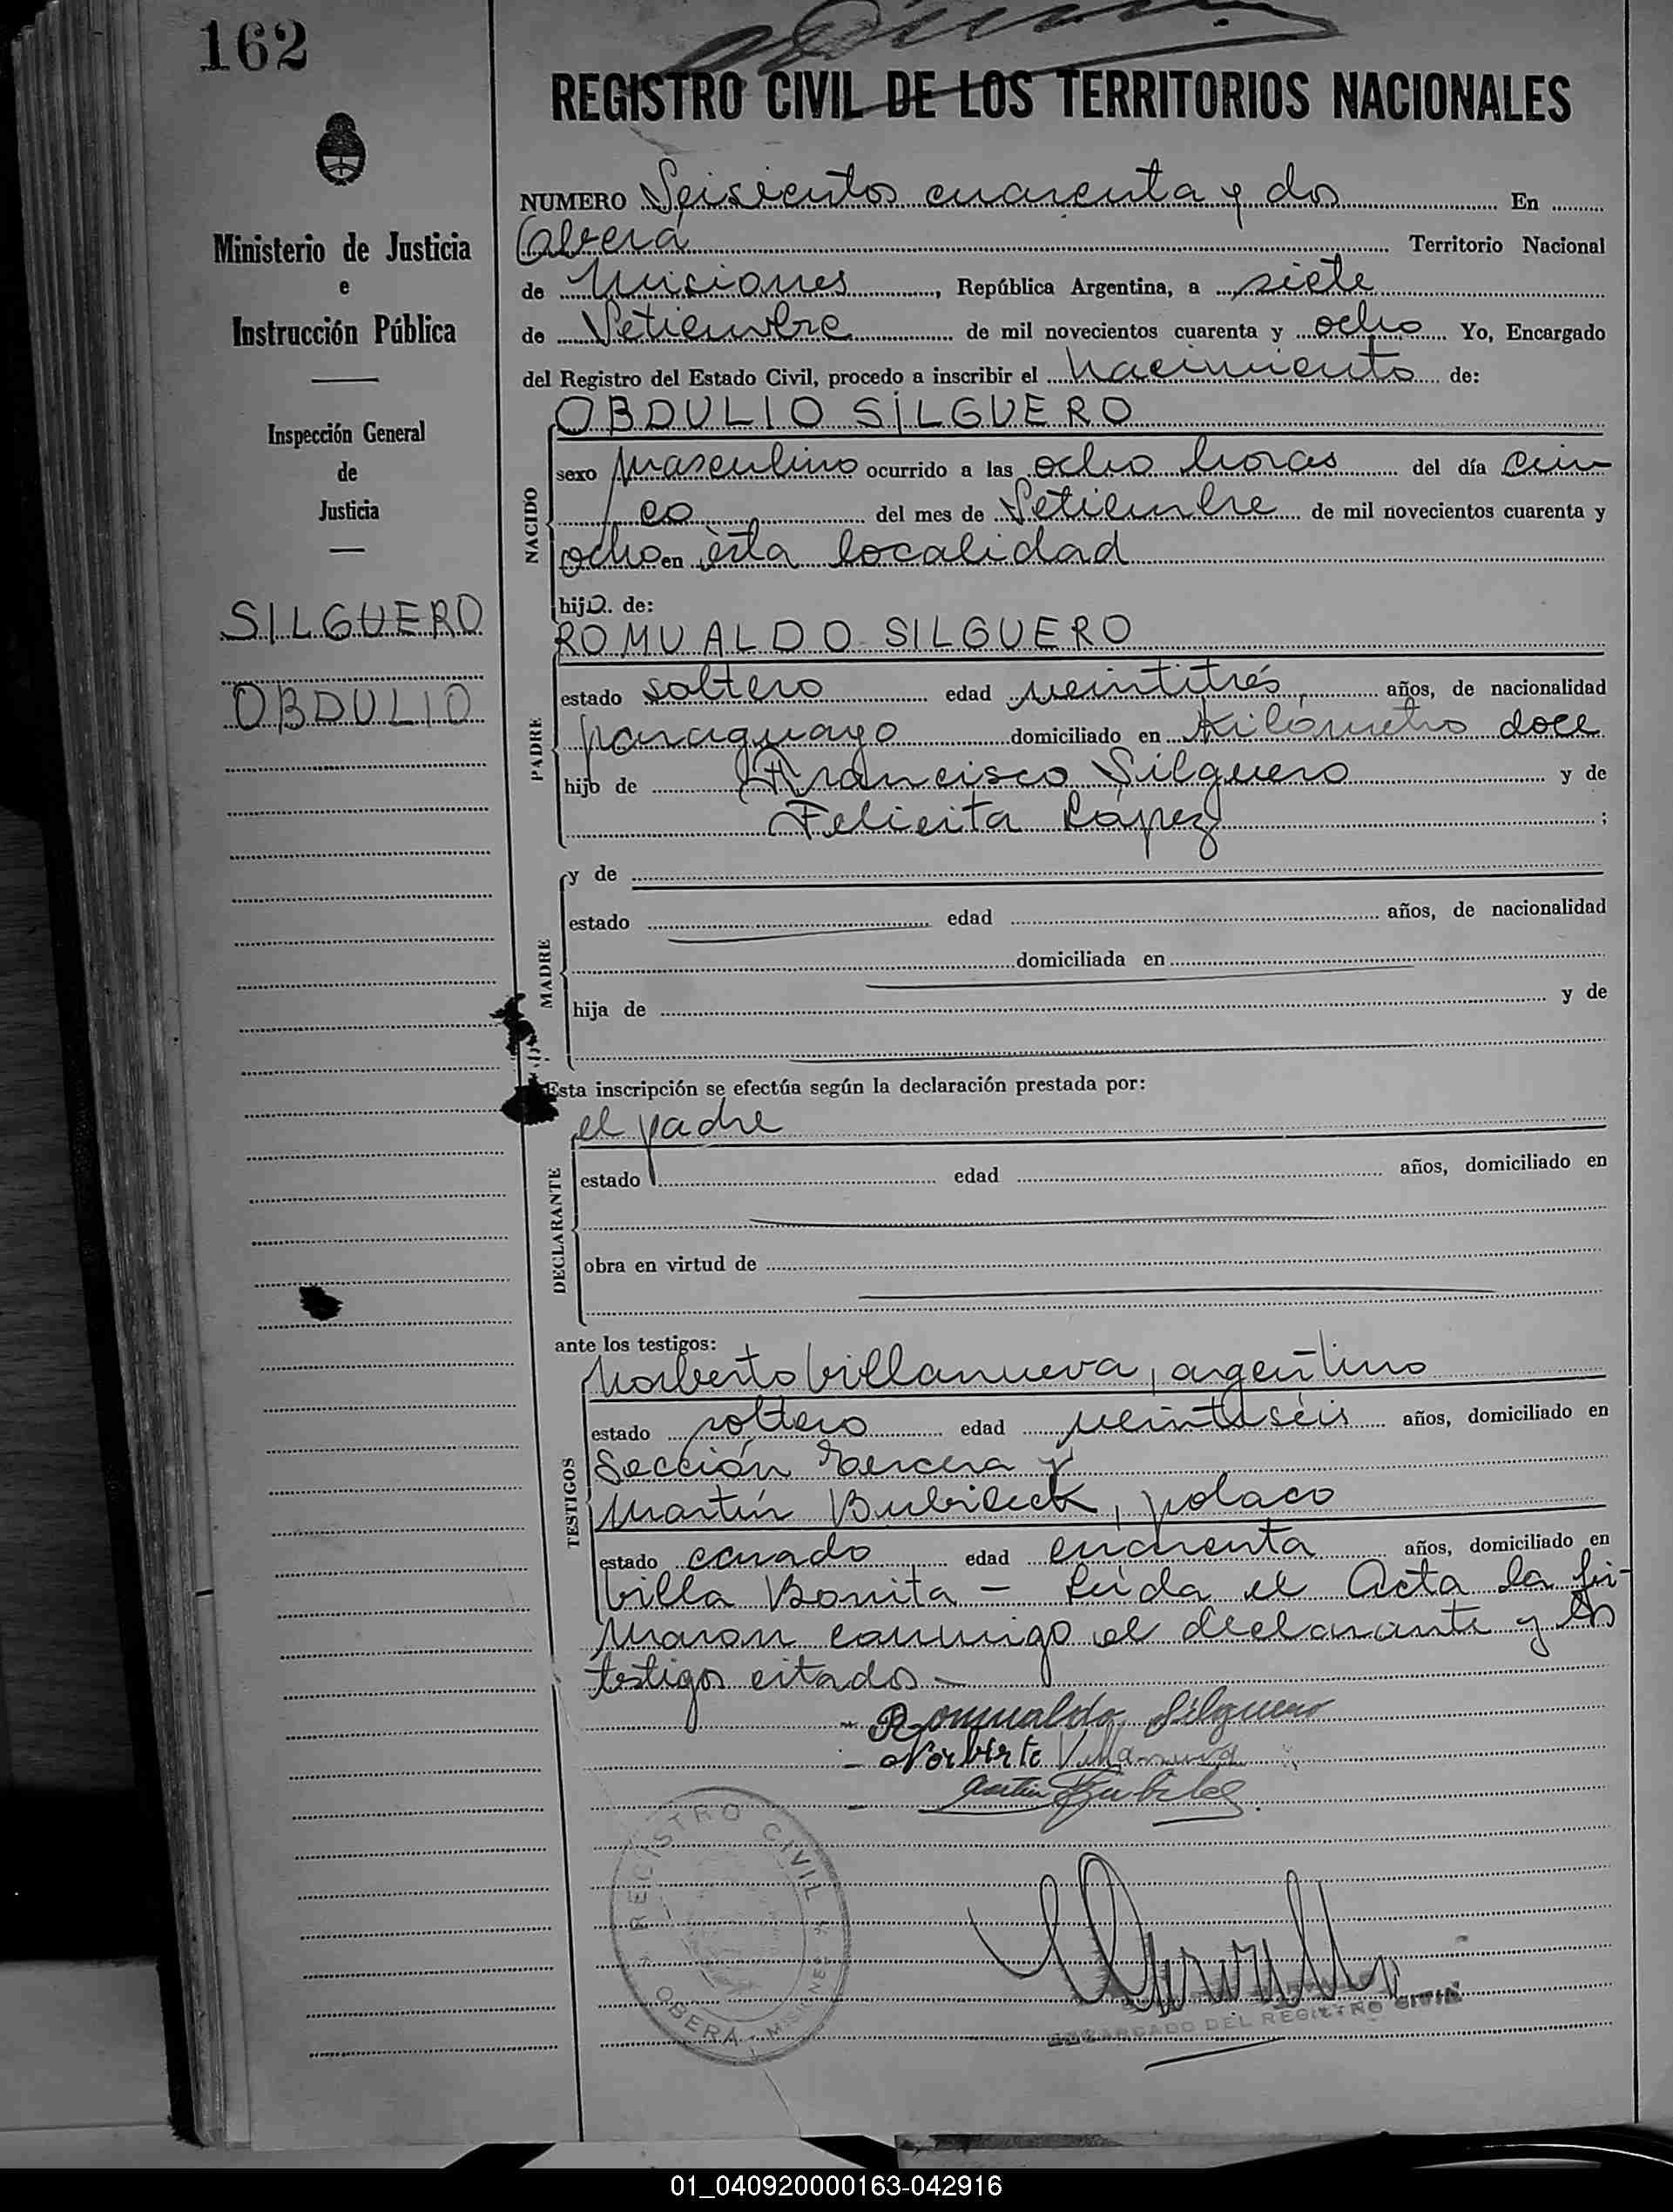 162
REGISTRO CIVIL DE LOS TERRITORIOS NACIONALES
Ministerio de Justicia
e
Instrucción Pública
Inspección General
de
Justicia
SILGUERO
OBDULIO
NUMERO Seiscientos cuarenta y dos En
Oberá Territorio Nacional
de Misiones, República Argentina, a siete
de Setiembre de mil novecientos cuarenta y ocho Yo, Encargado
del Registro del Estado Civil, procedo a inscribir el nacimiento de:
NACIDO
OBDULIO SILGUERO
sexo masculino ocurrido a las ocho horas del día cin
co del mes de Setiembre de mil novecientos cuarenta y
ocho en ésta localidad
hijo de:
PADRE
ROMUALDO SILGUERO
estado soltero edad veintitrés, años, de nacionalidad
paraguayo domiciliado en Kilómetro doce
hijo de Francisco Silguero y de
Felicita López ;
MADRE
y de
estado edad años, de nacionalidad
domiciliada en
hija de y de
Esta inscripción se efectúa según la declaración prestada por:
DECLARANTE
el padre
estado edad años, domiciliado en
obra en virtud de
ante los testigos:
TESTIGOS
Norberto Villanueva, argentino
estado soltero edad veintiséis años, domiciliado en
Sección Tercera y
Martín Bubileck, polaco
estado casado edad cuarenta años, domiciliado en
Villa Bonita - Leída el Acta la fir-
maron conmigo el declarante y los
testigos citados -
- Romualdo Silguero
- Norberto Villanueva
- Martin
REGISTRO CIVIL
OBERA - MISIONES
ENCARGADO DEL REGISTRO CIVIL
01_040920000163-042916